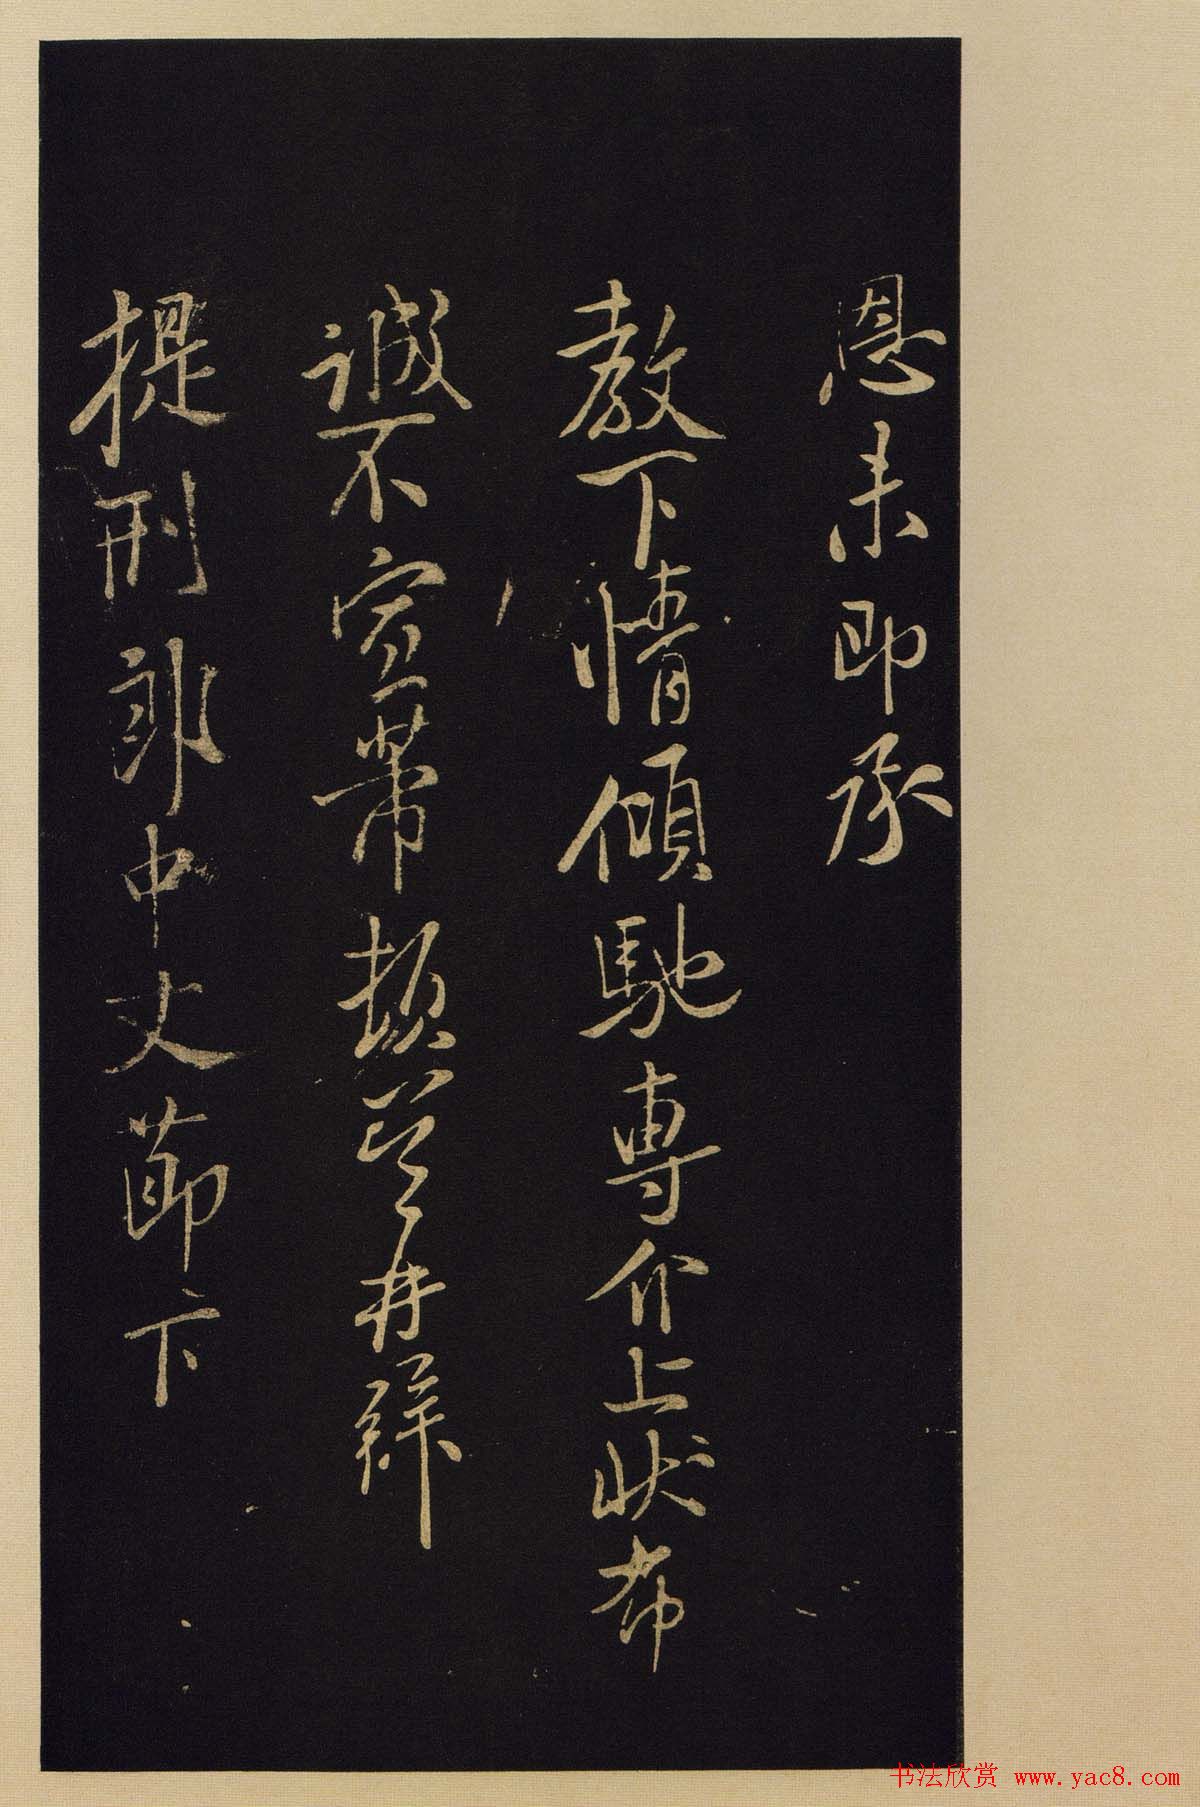 恩未即承
教下情傾馳專介上狀布
誠不宣芾頓首再拜
提刑郎中丈節下
书法欣赏 www.yac8.com